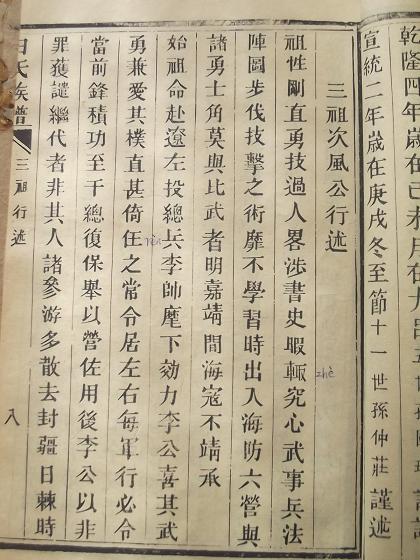 乾隆四年歲在己未月在
宣統二年歲在庚戌冬至節十一世孫仲莊謹述
三祖次風公行述
祖性剛直勇技過人畧涉書史暇輒究心武事兵法
zhé
陣圖步伐技擊之術靡不學習時出入海防六營與
諸勇士角莫與比武者明嘉靖間海寇不靖承
始祖命赴遼左投總兵李帥麾下効力李公喜其武
勇兼愛其樸直甚倚任之常令居左右每軍行必令
rèn
當前鋒積功至千總復保舉以營佐用後李公以非
罪獲譴繼代者非其人諸參游多散去封疆日棘時
氏族譜
三祖行述
八